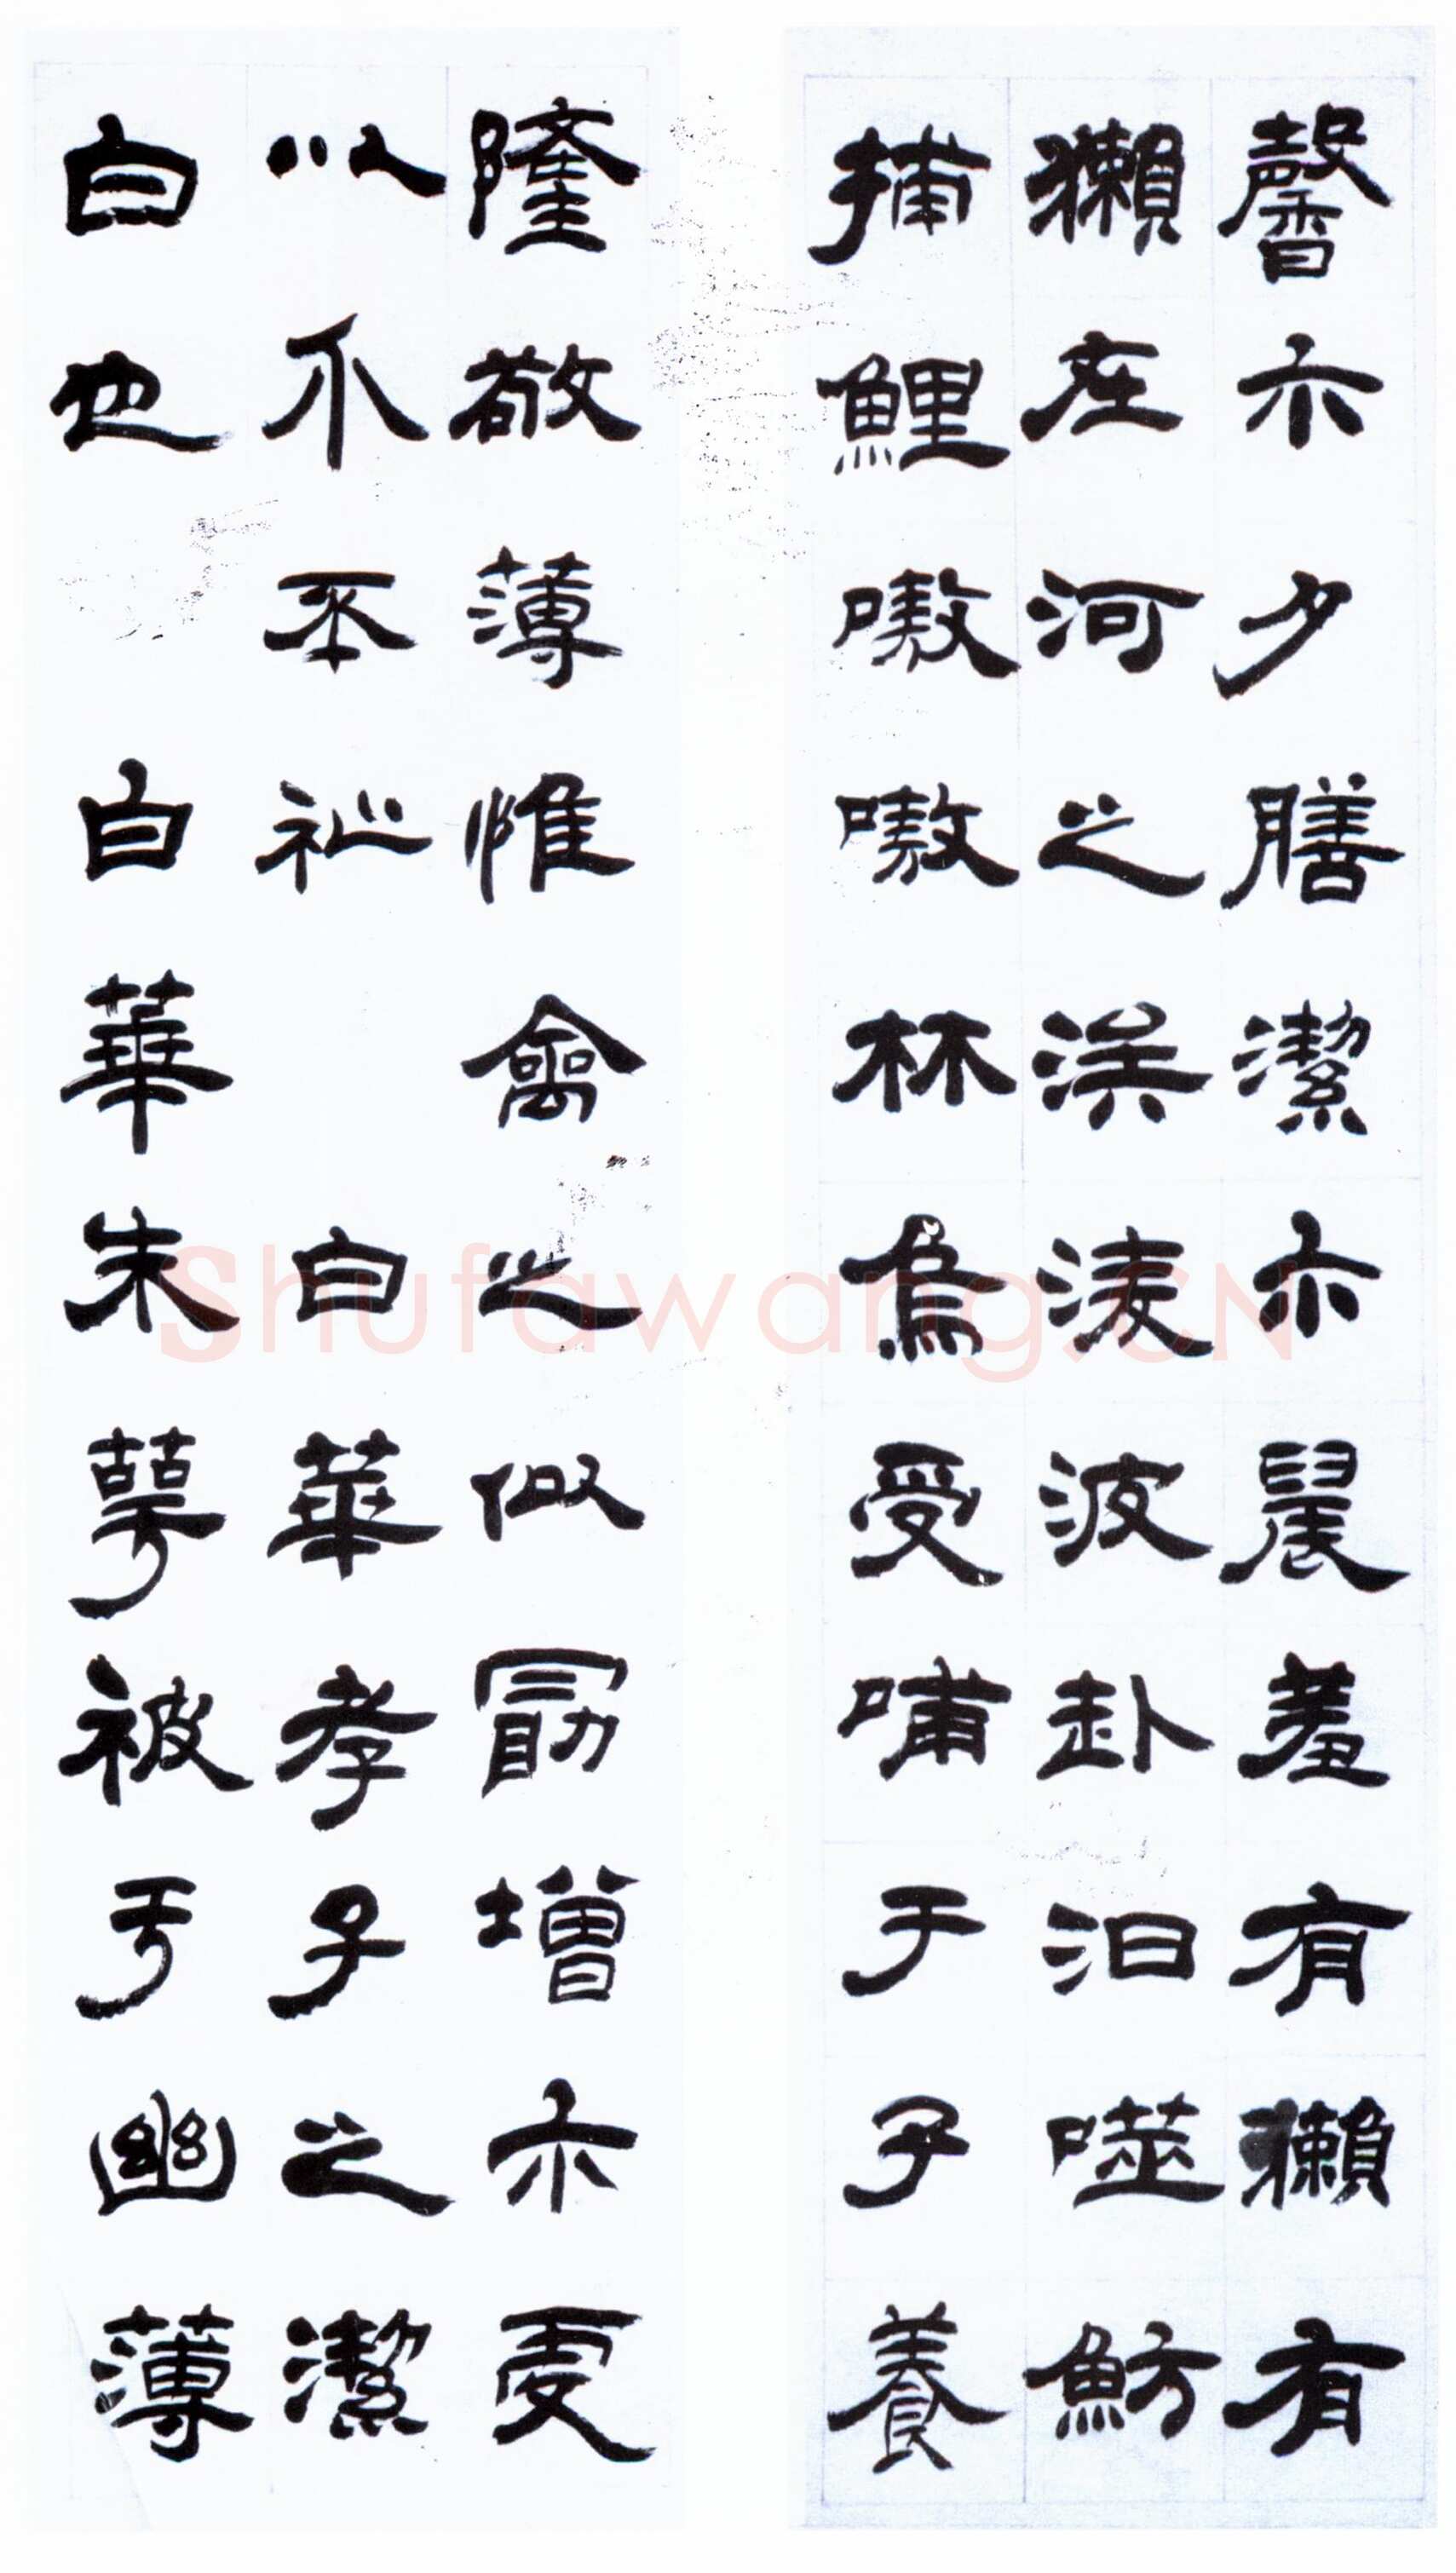 馨尒夕膳潔尒晨羞有獺有
獺在河之涘淩波赴汨噬魴
捕鯉嗷嗷林烏受哺于子養
隆敬薄惟禽之似勗增尒虔
以介丕祉 白華孝子之潔
白也 白華朱萼被于幽薄
Shufawang.CN